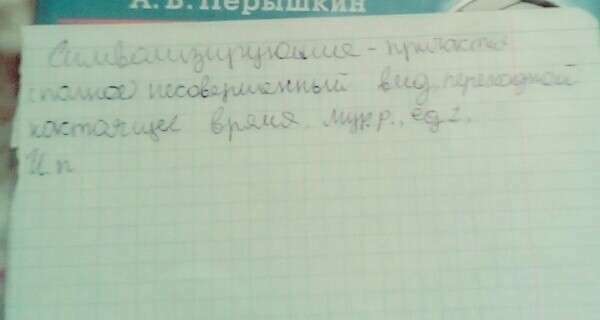 А. В. Перышкин
Символизирующие - причастие
(полное) несовершенный вид, переходной
настоящее время, муж.р., ед.ч.
И.п